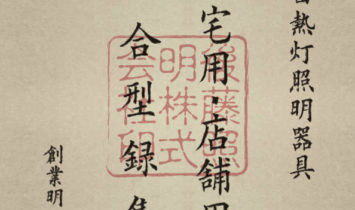 熱灯照明器具
宅用・店舗用
合型録
創業明
後藤照
明株式
会社印